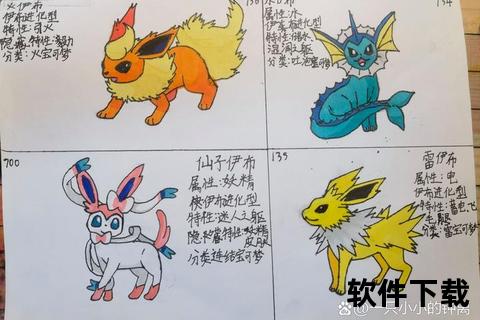 火伊布
伊布进化型
特性:引火
隐藏特性:
分类:火宝可梦
136
134
属性:水
伊布进化型
特性:储水
湿润之躯
分类:吐泡宝可梦
700
仙子伊布
属性:妖精
伊布进化型
特性:迷人之躯
隐藏特性:妖精
皮肤
分类:连结宝可梦
135
雷伊布
属性:电
伊布进化型
特性:蓄电,飞
毛腿
分类:雷宝可梦
软件下载
一只小小的钟离